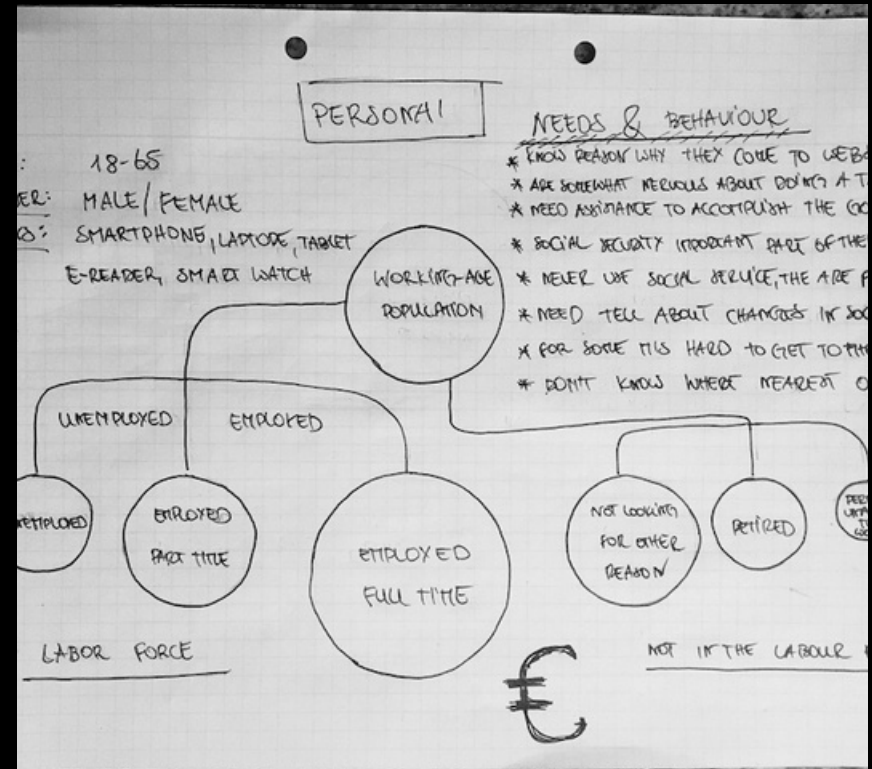 PERSONAL
18-65
ER: MALE/FEMALE
S: SMARTPHONE, LAPTOPE, TABLET
E-READER, SMART WATCH
NEEDS & BEHAVIOUR
* KNOW REASON WHY THEY COME TO WEBS
* ARE SOMEWHAT NERVOUS ABOUT DOING A T
* NEED ASSISTANCE TO ACCOMPLISH THE GO
* SOCIAL SECURITY IMPORTANT PART OF THE
* NEVER USE SOCIAL SERVICE, THE ARE
* NEED TELL ABOUT CHANGES IN SOC
* FOR SOME HARD TO GET TO THE
* DON'T KNOW WHERE NEAREST O
WORKING-AGE
POPULATION
UNEMPLOYED
EMPLOYED
EMPLOYED
EMPLOYED
PART TIME
EMPLOYED
FULL TIME
NOT LOOKING
FOR OTHER
REASON
RETIRED
LABOR FORCE
€
NOT IN THE LABOUR